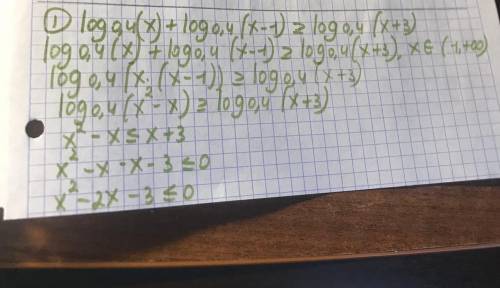 ① log 0,4 (x) + log 0,4 (x-1) ≥ log 0,4 (x+3)
log 0,4 (x) + log 0,4 (x-1) ≥ log 0,4 (x+3), x ∈ (-1,+∞)
log 0,4 (x · (x-1)) ≥ log 0,4 (x+3)
log 0,4 (x² - x) ≥ log 0,4 (x+3)
x² - x ≤ x + 3
x² - x - x - 3 ≤ 0
x² - 2x - 3 ≤ 0